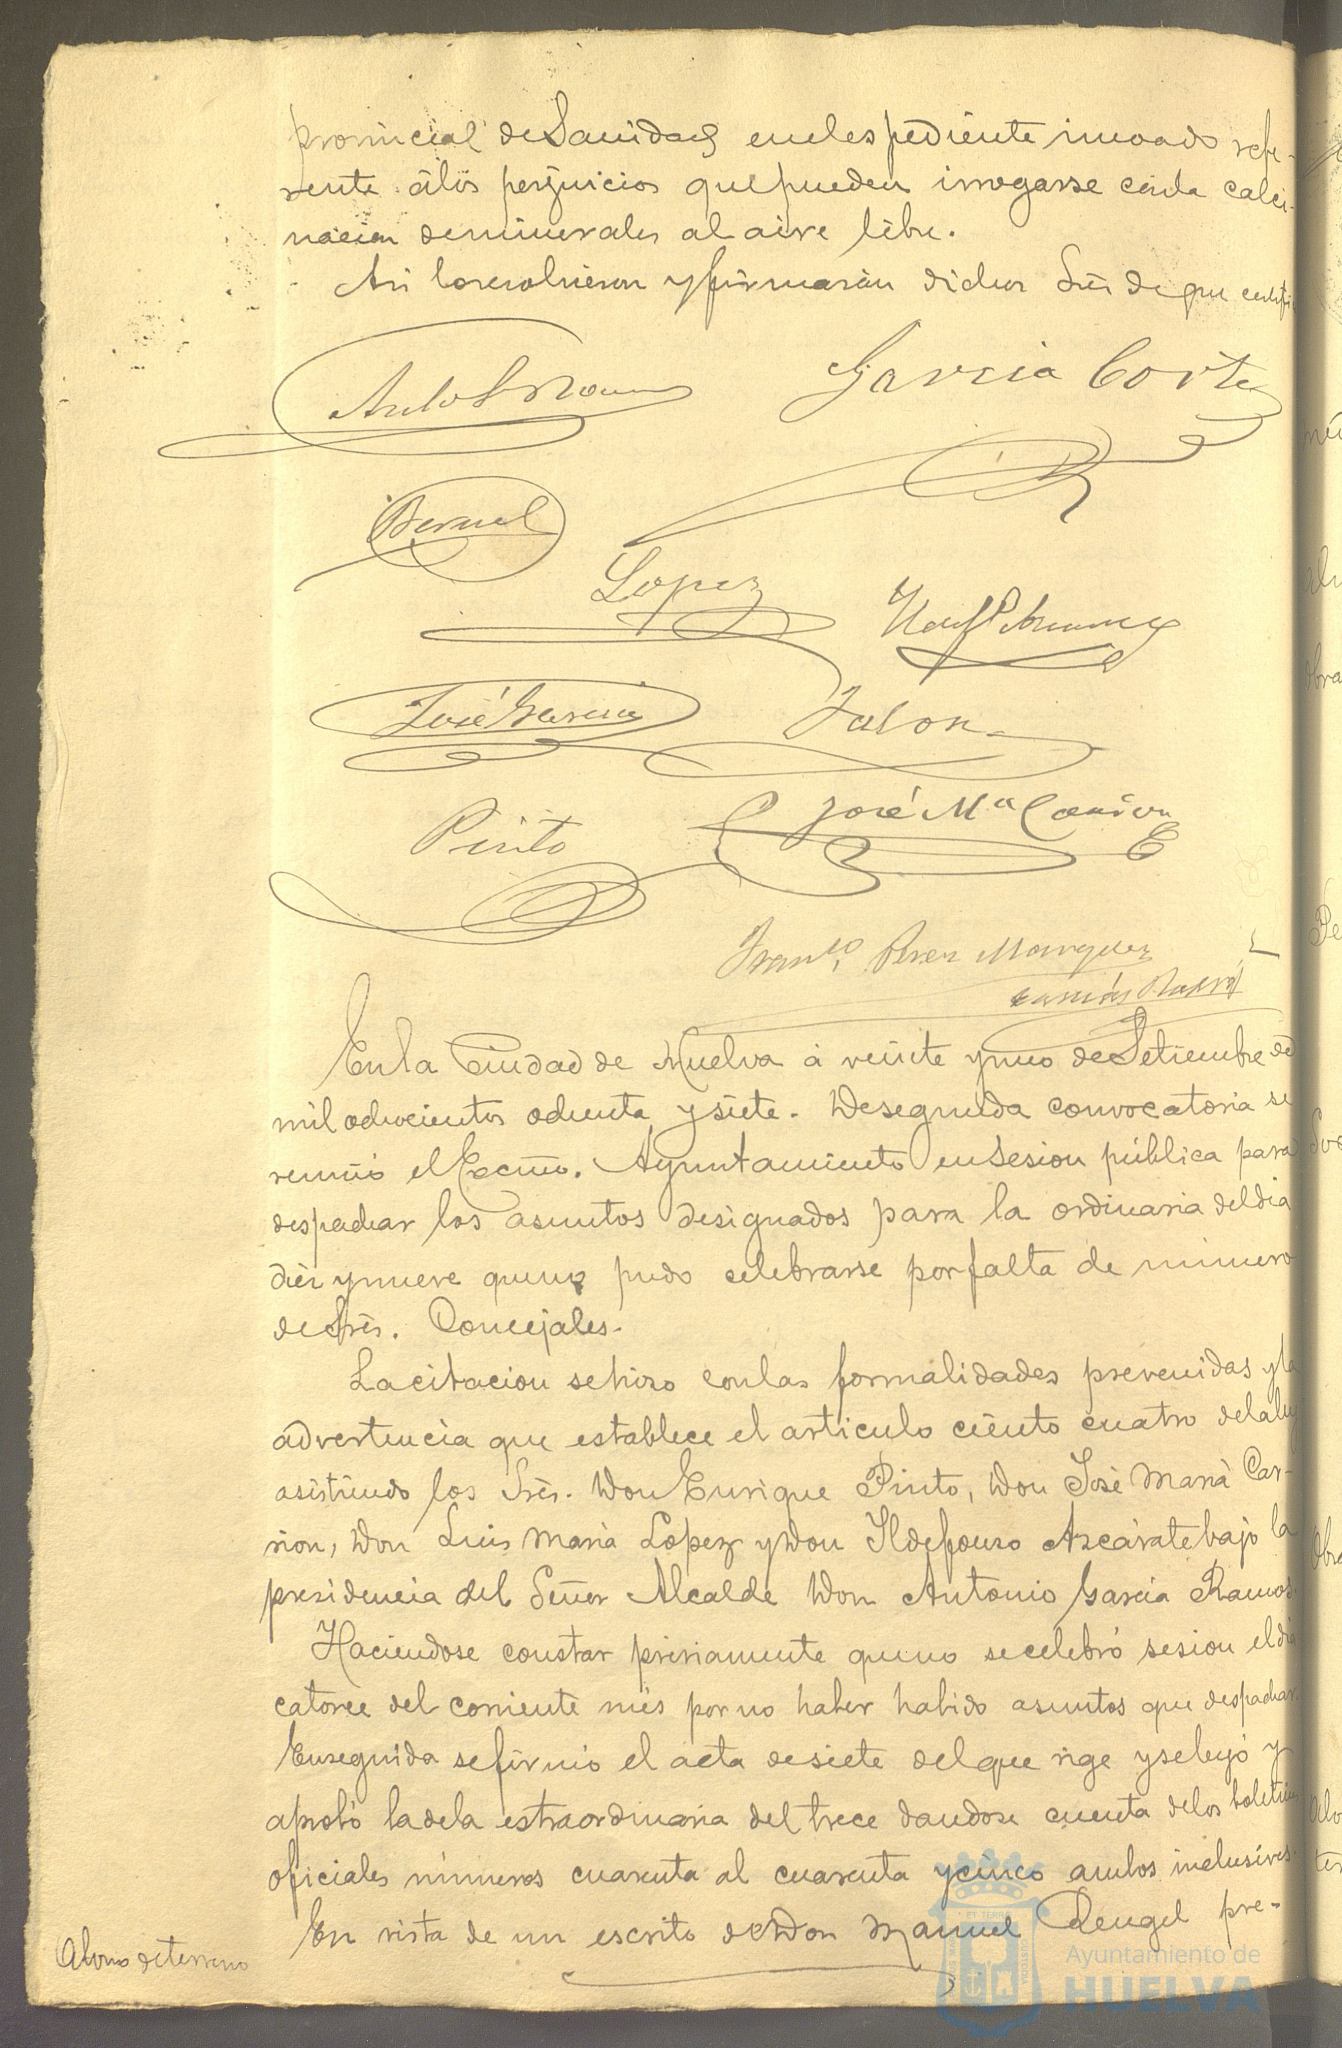 provincial de Sanidad en el espediente incoado refe-
rente á los perjuicios que pueden irrogarse con la calci-
nacion de minerales al aire libre.
Asi lo resolvieron y firmarán dichos Sres de que certifi
Garcia Cortes
Bernal
Lopez
José Garcia
Jalon
Pinto
José Mª Carrion
Franco. Perez Marquez
En la Ciudad de Huelva á veinte y uno de Setiembre de
mil ochocientos ochenta y siete. De segunda convocatoria se
reunió el Excmo. Ayuntamiento en sesion pública para
despachar los asuntos designados para la ordinaria del dia
diez y nueve que no pudo celebrarse por falta de número
de Sres. Concejales.
La citacion se hizo con las formalidades prevenidas y la
advertencia que establece el articulo ciento cuatro de la ley
asistiendo los Sres. Don Enrique Pinto, Don José Maria Car-
rion, Don Luis Maria Lopez y Don Ildefonso Azcárate bajo la
presidencia del Señor Alcalde Don Antonio Garcia Ramos.
Haciendose constar previamente que no se celebró sesion el dia
catorce del corriente més por no haber habido asuntos que despachar.
Enseguida se firmó el acta de siete del que rige y se leyó y
aprobó la de la estraordinaria del trece dandose cuenta de los boletines
oficiales números cuarenta al cuarenta y cinco ambos inclusives.
Abono de terreno
En vista de un escrito de Don Manuel Rengel pre-
Ayuntamiento de
HUELVA